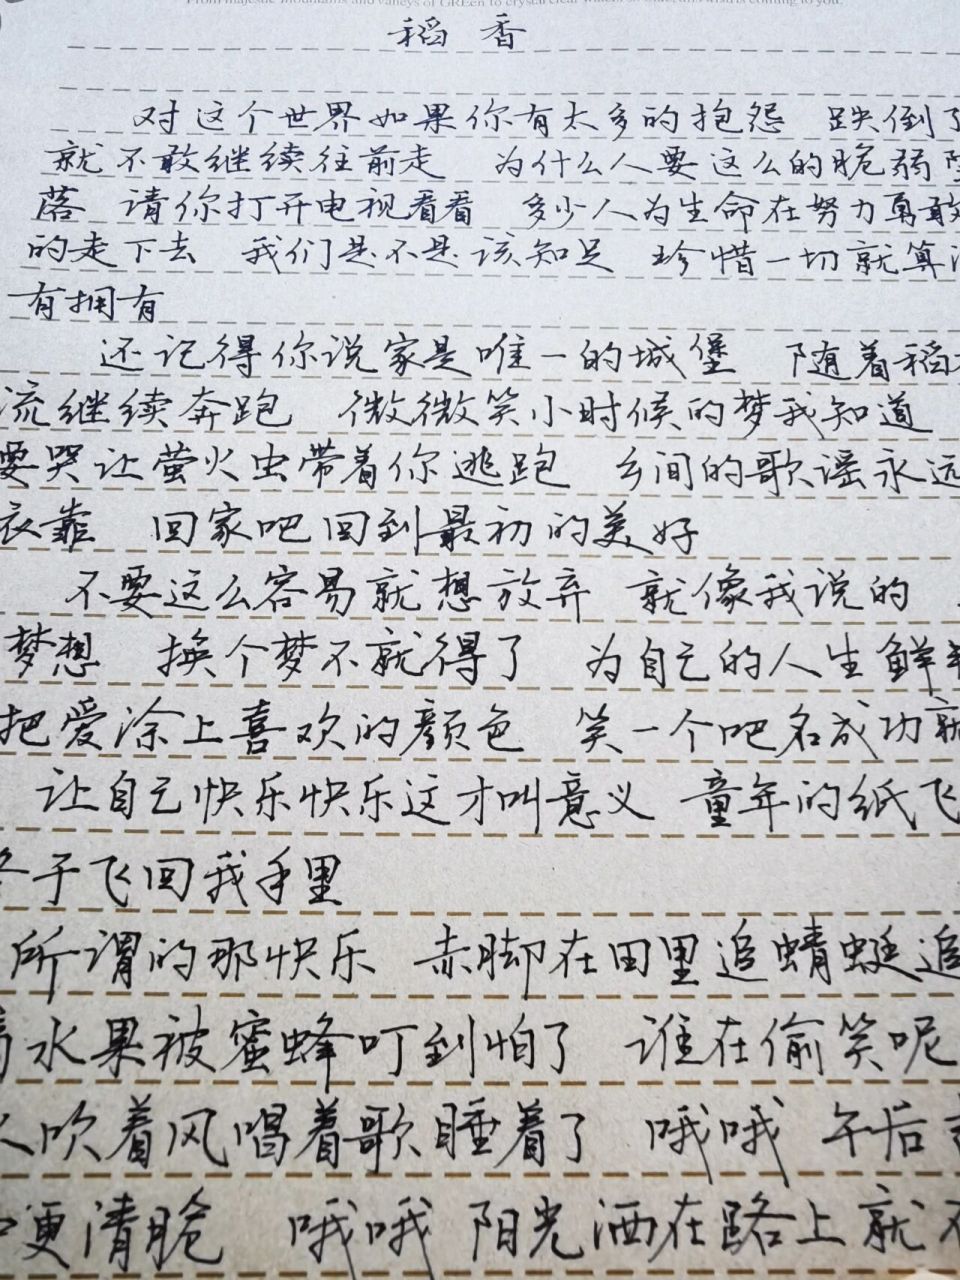 稻香
对这个世界如果你有太多的抱怨 跌倒了
就不敢继续往前走 为什么人要这么的脆弱
落 请你打开电视看看 多少人为生命在努力勇敢
的走下去 我们是不是该知足 珍惜一切就算
有拥有
还记得你说家是唯一的城堡 随着稻
流继续奔跑 微微笑小时候的梦我知道
要哭让萤火虫带着你逃跑 乡间的歌谣永远
依靠 回家吧回到最初的美好
不要这么容易就想放弃 就像我说的
梦想 换个梦不就得了 为自己的人生鲜
把爱涂上喜欢的颜色 笑一个吧 名成功就
让自己快乐快乐这才叫意义 童年的纸飞
终于飞回我手里
所谓的那快乐 赤脚在田里追蜻蜓追
水果被蜜蜂叮到怕了 谁在偷笑呢
吹着风唱着歌睡着了 哦哦 午后
更清脆 哦哦 阳光洒在路上就